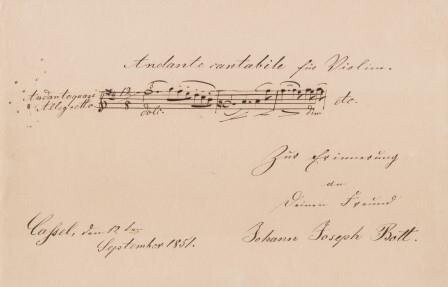 Andante cantabile für Violine.
Andante quasi
Allegretto
dol:
dim
etc.
Zur Erinnerung
an
Deinen Freund
Johann Joseph Bott.
Cassel, den 12ten
September 1851.